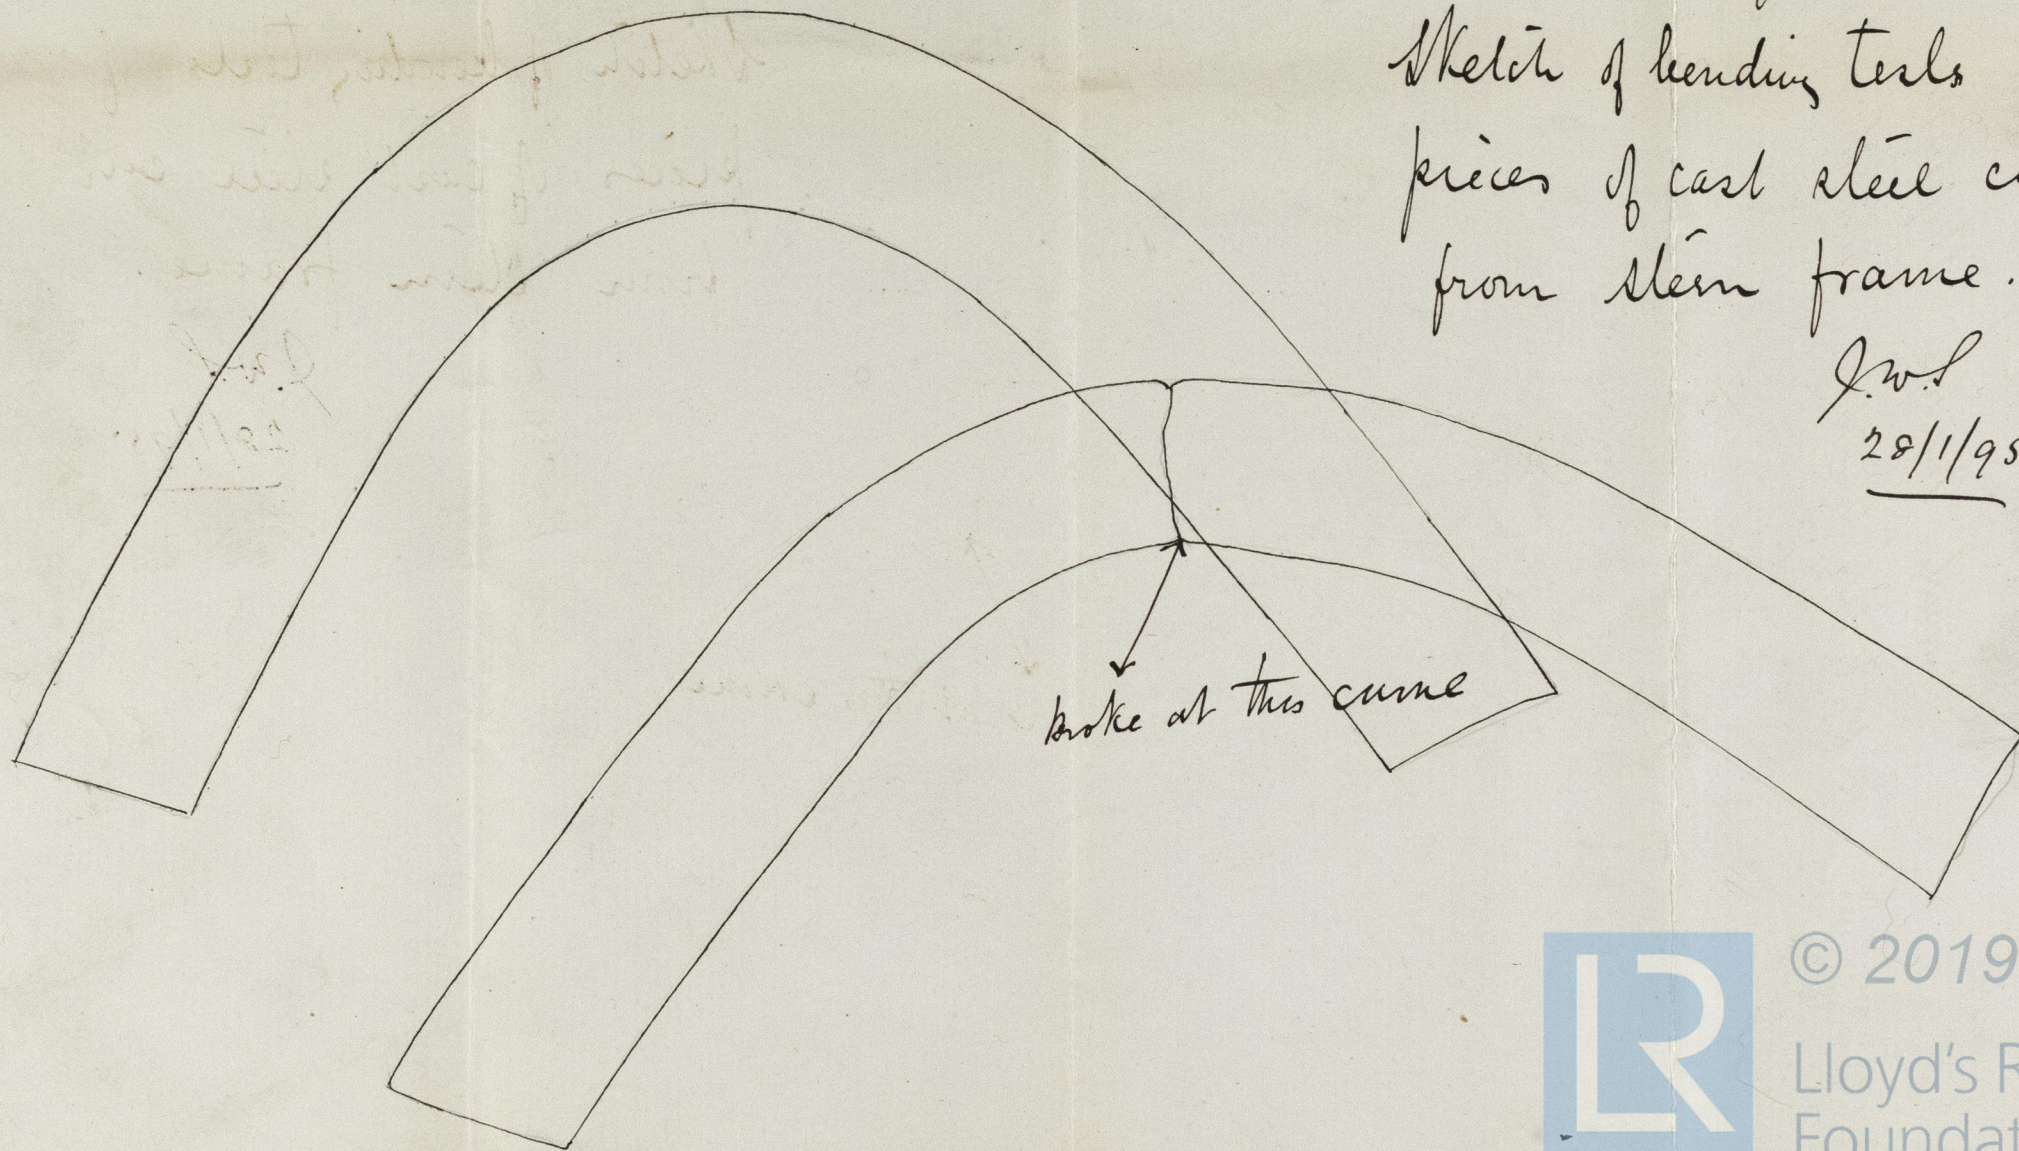 Sketch of bending tests
pieces of cast steel c
from stern frame.
J.W.S
28/1/95
broke at this curve
LR
© 2019
Lloyd's R
Foundat